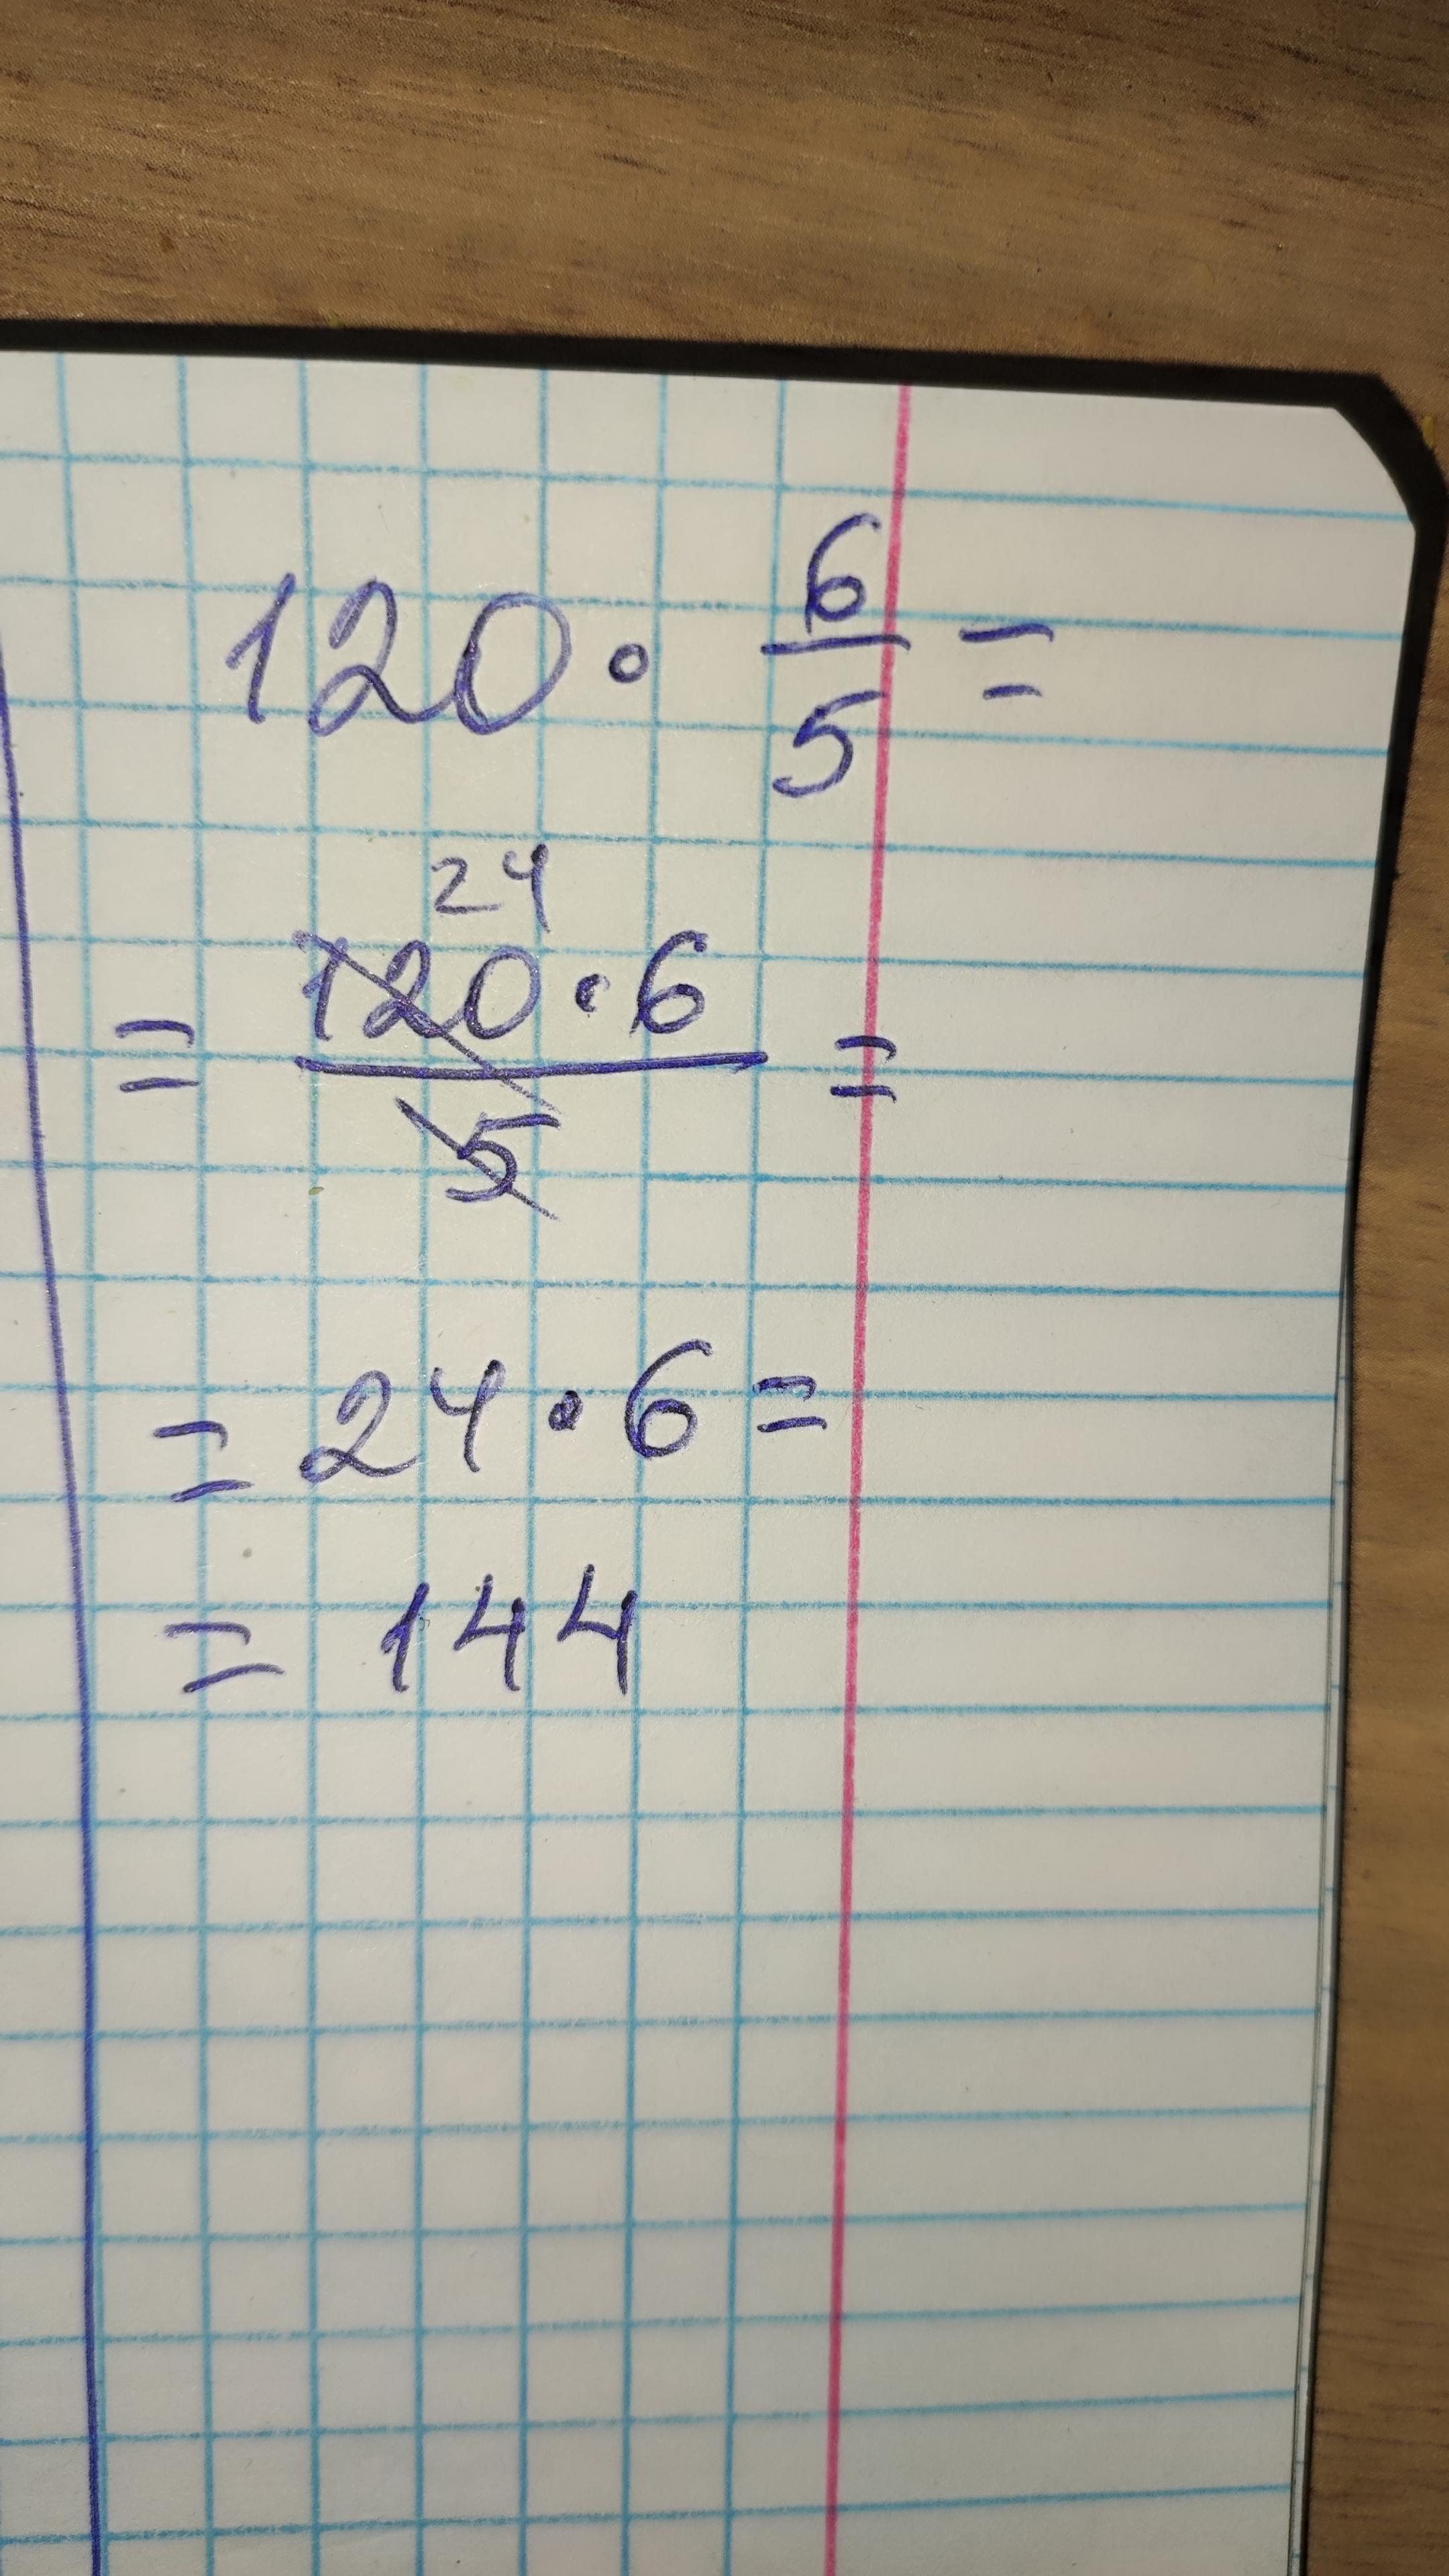 120 · 6/5 =
24
= 120 · 6 / 5 =
= 24 · 6 =
= 144